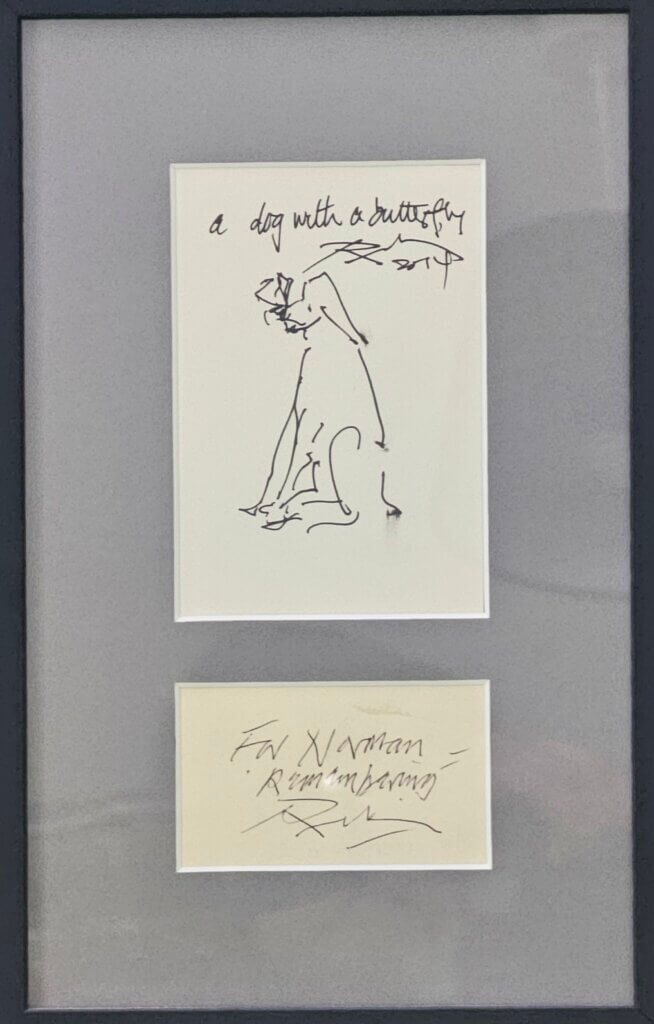 a dog with a butterfly
2014
For Norman –
Remembering